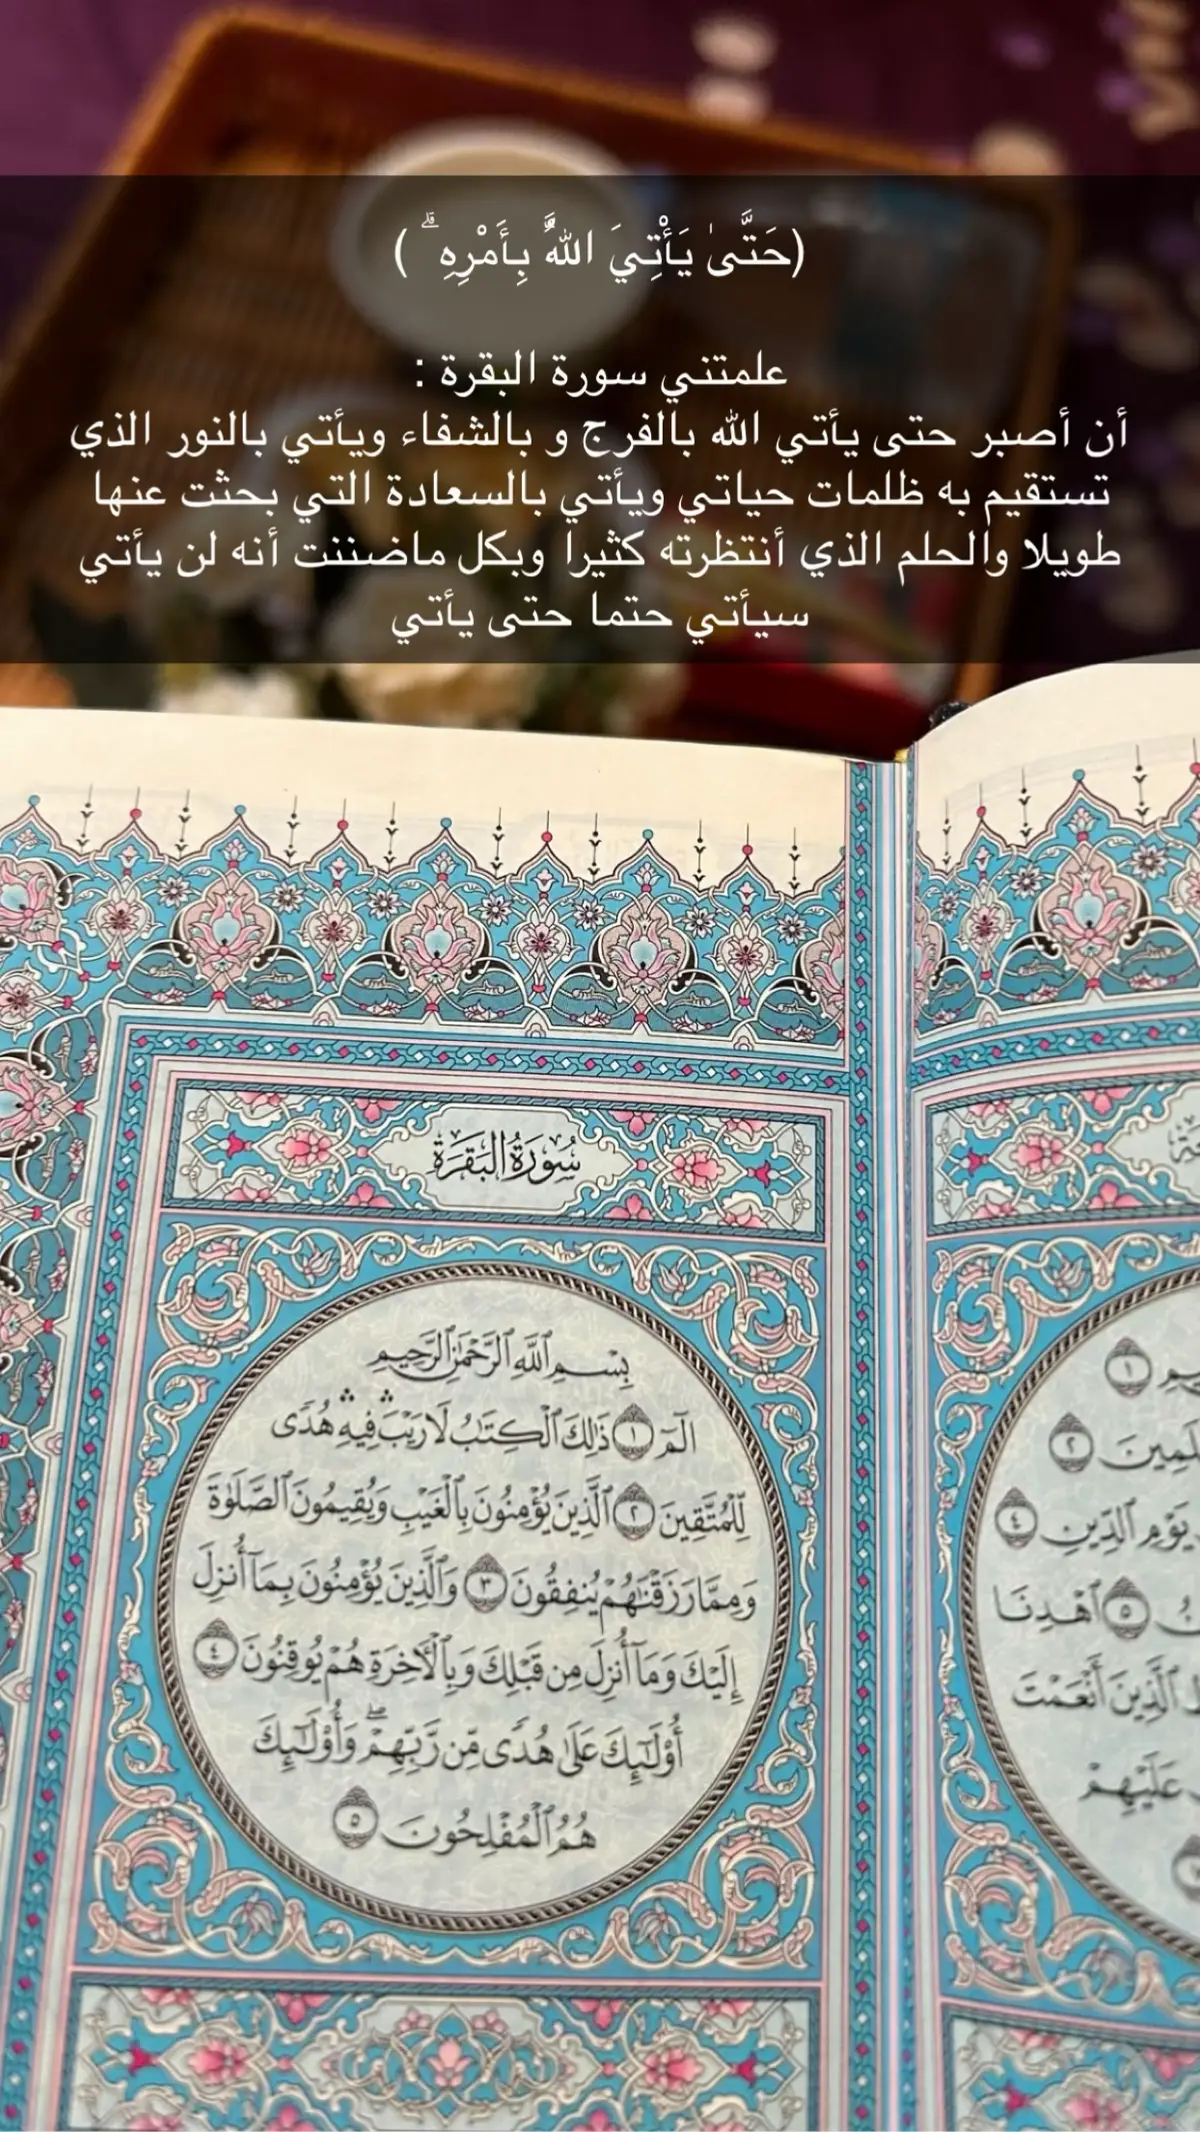 (حَتَّىٰ يَأْتِيَ اللَّهُ بِأَمْرِهِ ۗ )
علمتني سورة البقرة :
أن أصبر حتى يأتي الله بالفرج و بالشفاء ويأتي بالنور الذي
تستقيم به ظلمات حياتي ويأتي بالسعادة التي بحثت عنها
طويلا والحلم الذي أنتظرته كثيرا وبكل ماضننت أنه لن يأتي
سيأتي حتما حتى يأتي
١
٢
يَوْمِ ٱلدِّينِ ٤
٥ ٱهْدِنَا
ٱلَّذِينَ أَنْعَمْتَ
عَلَيْهِمْ
سُورَةُ البَقَرَةِ
بِسْمِ ٱللَّهِ ٱلرَّحْمَٰنِ ٱلرَّحِيمِ
الٓمٓ ١ ذَٰلِكَ ٱلْكِتَٰبُ لَا رَيْبَ ۛ فِيهِ ۛ هُدًى
لِّلْمُتَّقِينَ ٢ ٱلَّذِينَ يُؤْمِنُونَ بِٱلْغَيْبِ وَيُقِيمُونَ ٱلصَّلَوٰةَ
وَمِمَّا رَزَقْنَٰهُمْ يُنفِقُونَ ٣ وَٱلَّذِينَ يُؤْمِنُونَ بِمَآ أُنزِلَ
إِلَيْكَ وَمَآ أُنزِلَ مِن قَبْلِكَ وَبِٱلْأَخِرَةِ هُمْ يُوقِنُونَ ٤
أُو۟لَٰٓئِكَ عَلَىٰ هُدًى مِّن رَّبِّهِمْ ۖ وَأُو۟لَٰٓئِكَ
هُمُ ٱلْمُفْلِحُونَ ٥